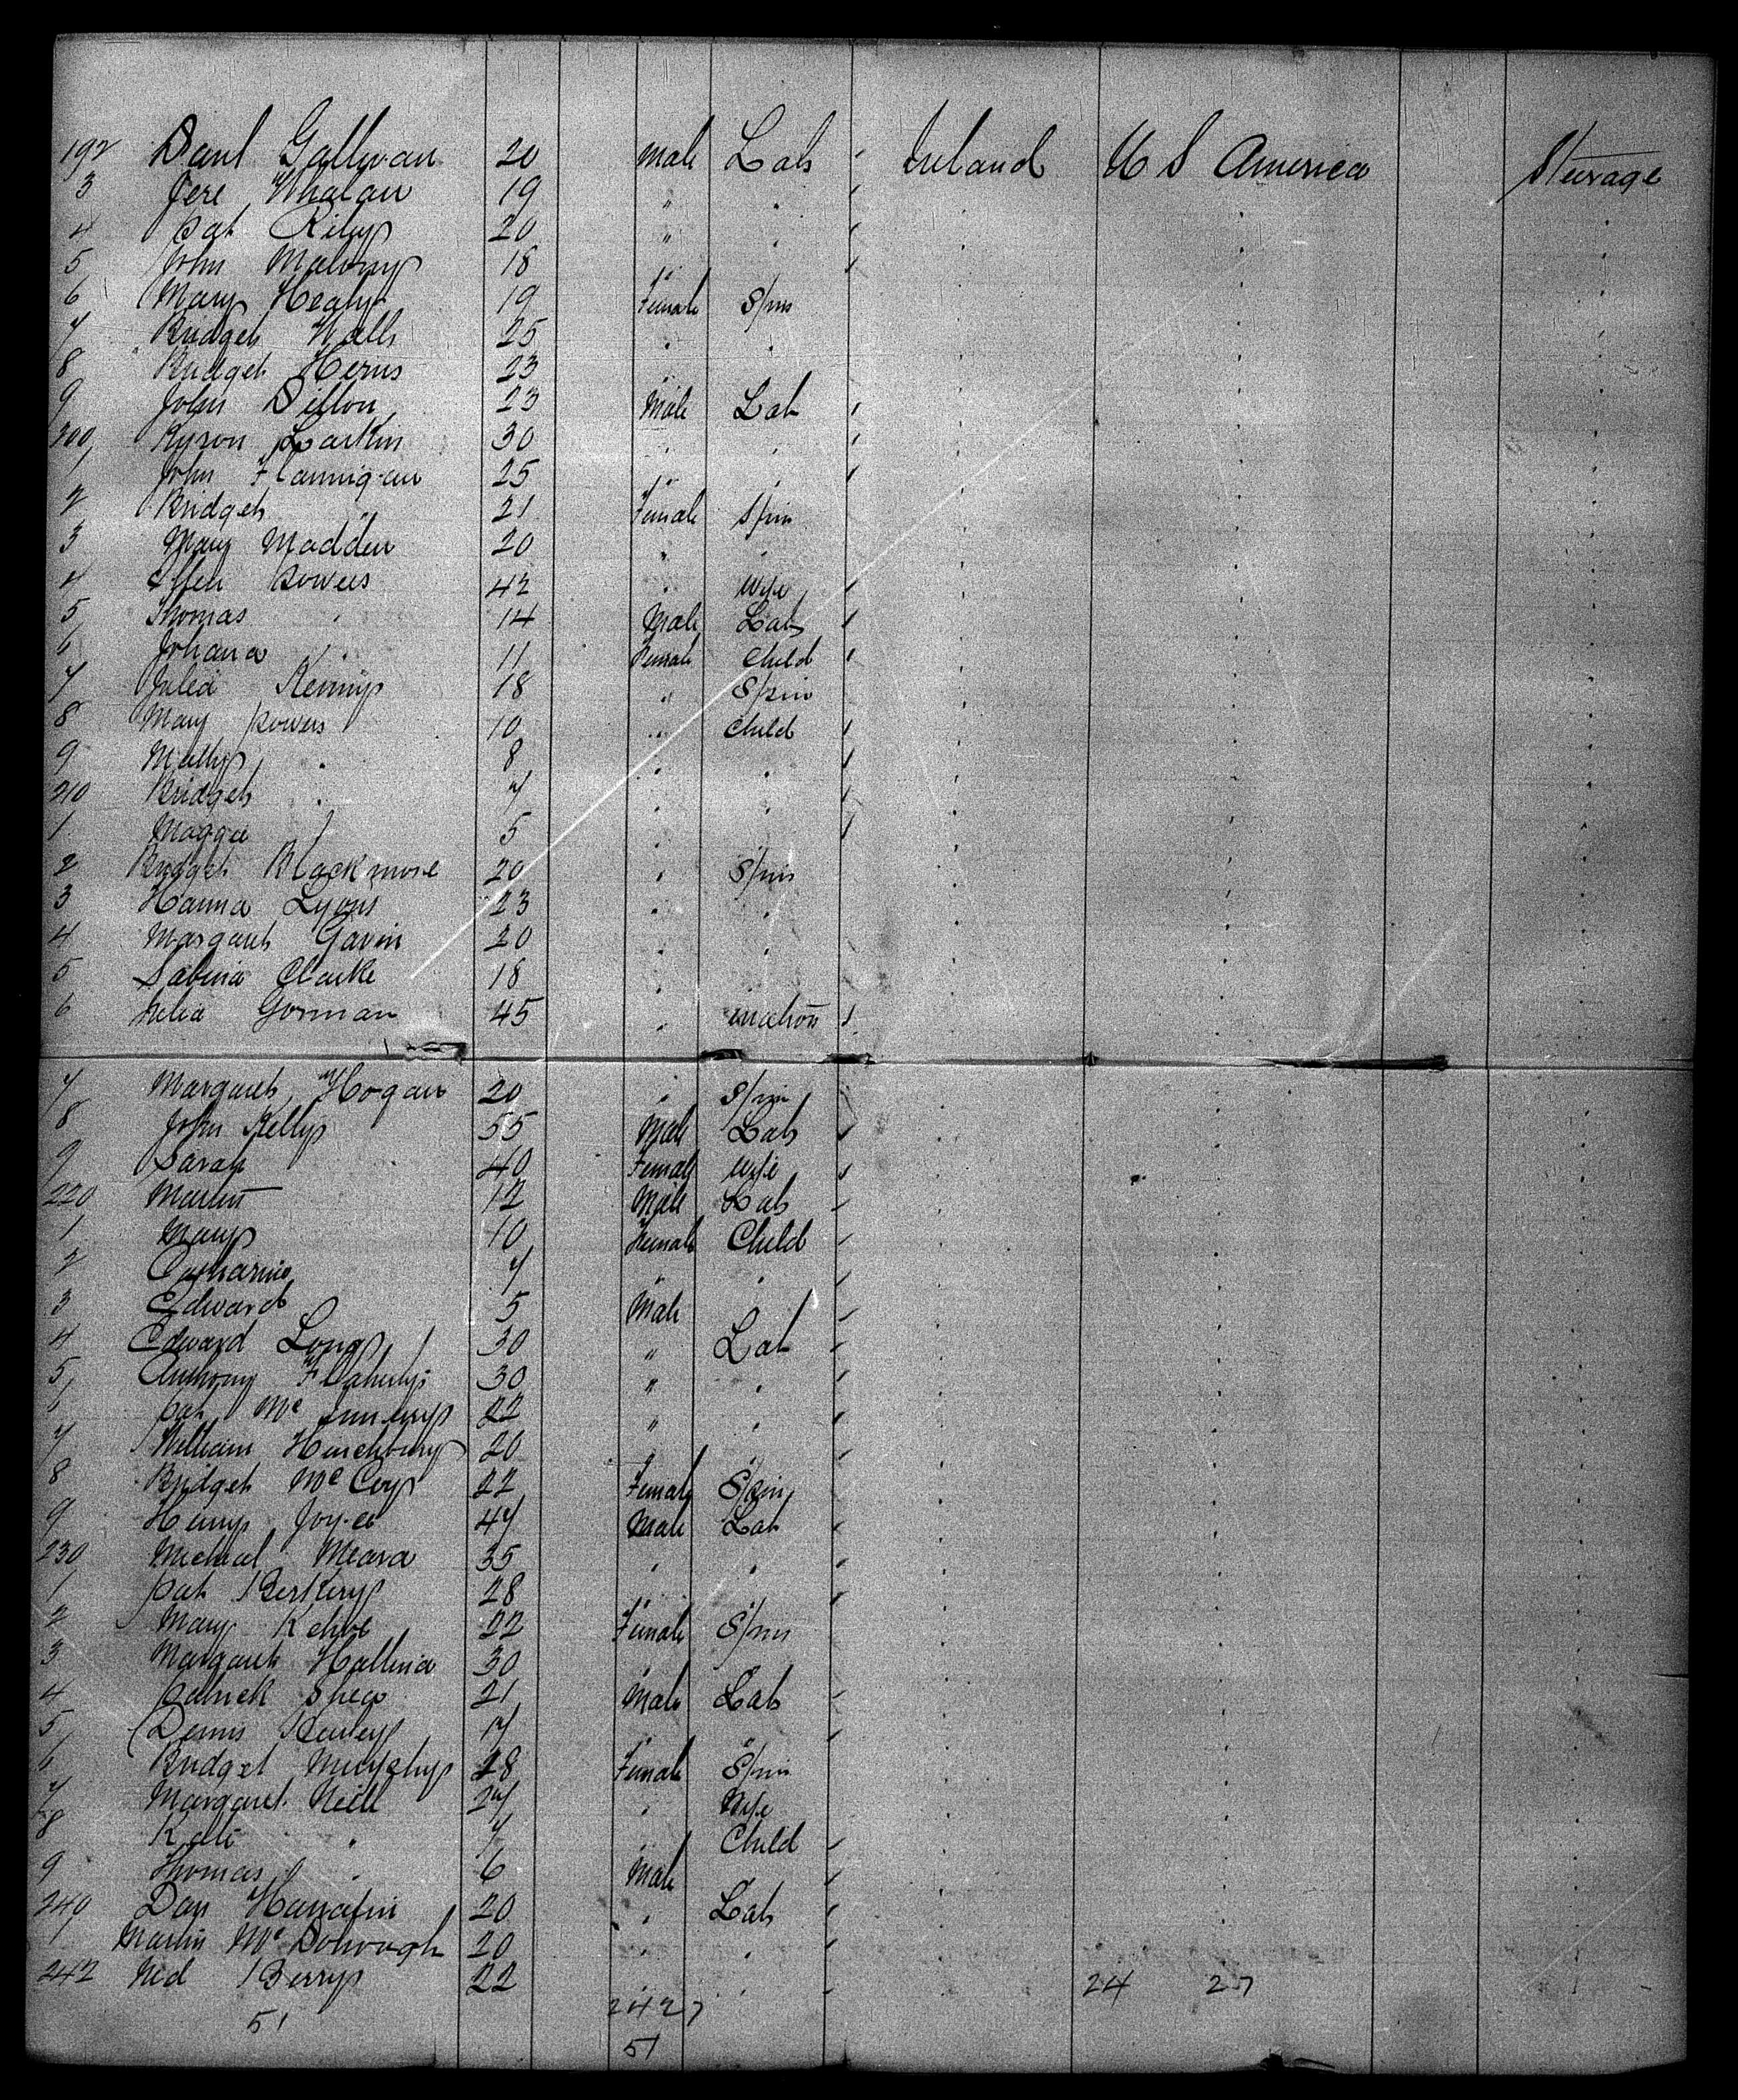 192 Danl Gallivan 20 Male Lab Ireland U S America Steerage
3 Jere Whalan 19 " "
4 Pat Riley 20 " "
5 John Malony 18 "
6 Mary Healy 19 Female Spin
7 Bridget Walls 25 " "
8 Bridget Herns 23
9 John Dillon 23 Male Lab
200 Larkin 30 " "
1 John Flannigan 25 "
2 Bridget " 21 Female Spin
3 Mary Madden 20 " "
4 Ellen Powers 42 " Wife
5 Thomas " 14 Male Lab
6 Johana " 11 Female Child
7 Julia Kenny 18 " Spin
8 Mary Powers 10 " Child
9 " 8 " "
210 Bridget " 7 " "
1 Maggie " 5 " "
2 Bridget Blackmore 20 " Spin
3 Hanna Lyons 23 " "
4 Margaret Gavin 20 " "
5 Sabina Clarke 18 " "
6 Julia Gorman 45 " Matron
7 Margaret Hogan 20 " Spin
8 John Kelly 55 Male Lab
9 Sarah 40 Female Wife
220 Martin 12 Male Lab
1 Mary 10 Female Child
2 Catharine 7 " "
3 Edward 5 Male
4 Edward Long 30 " Lab
5 Anthony Flaherty 30 " "
6 Pat Mc 22 " "
7 William 20
8 Bridget McCoy 22 Female Spin
9 Henry Joyce 47 Male Lab
230 Micheal Meara 35 " "
1 Pat Berkery 28
2 Mary Kehoe 22 Female Spin
3 Margaret Hallina 30
4 Patrick Shea 21 Male Lab
5 Dennis Hurley 17
6 Bridget Murphy 28 Female Spin
7 Margaret Neill 27 " Wife
8 Kate " 7 " Child
9 Thomas " 6 Male
240 Dan Hanafin 20 " Lab
1 Martin McDonough 20 " "
242 Ned Berry 22 " " 24 27
51 2427
51